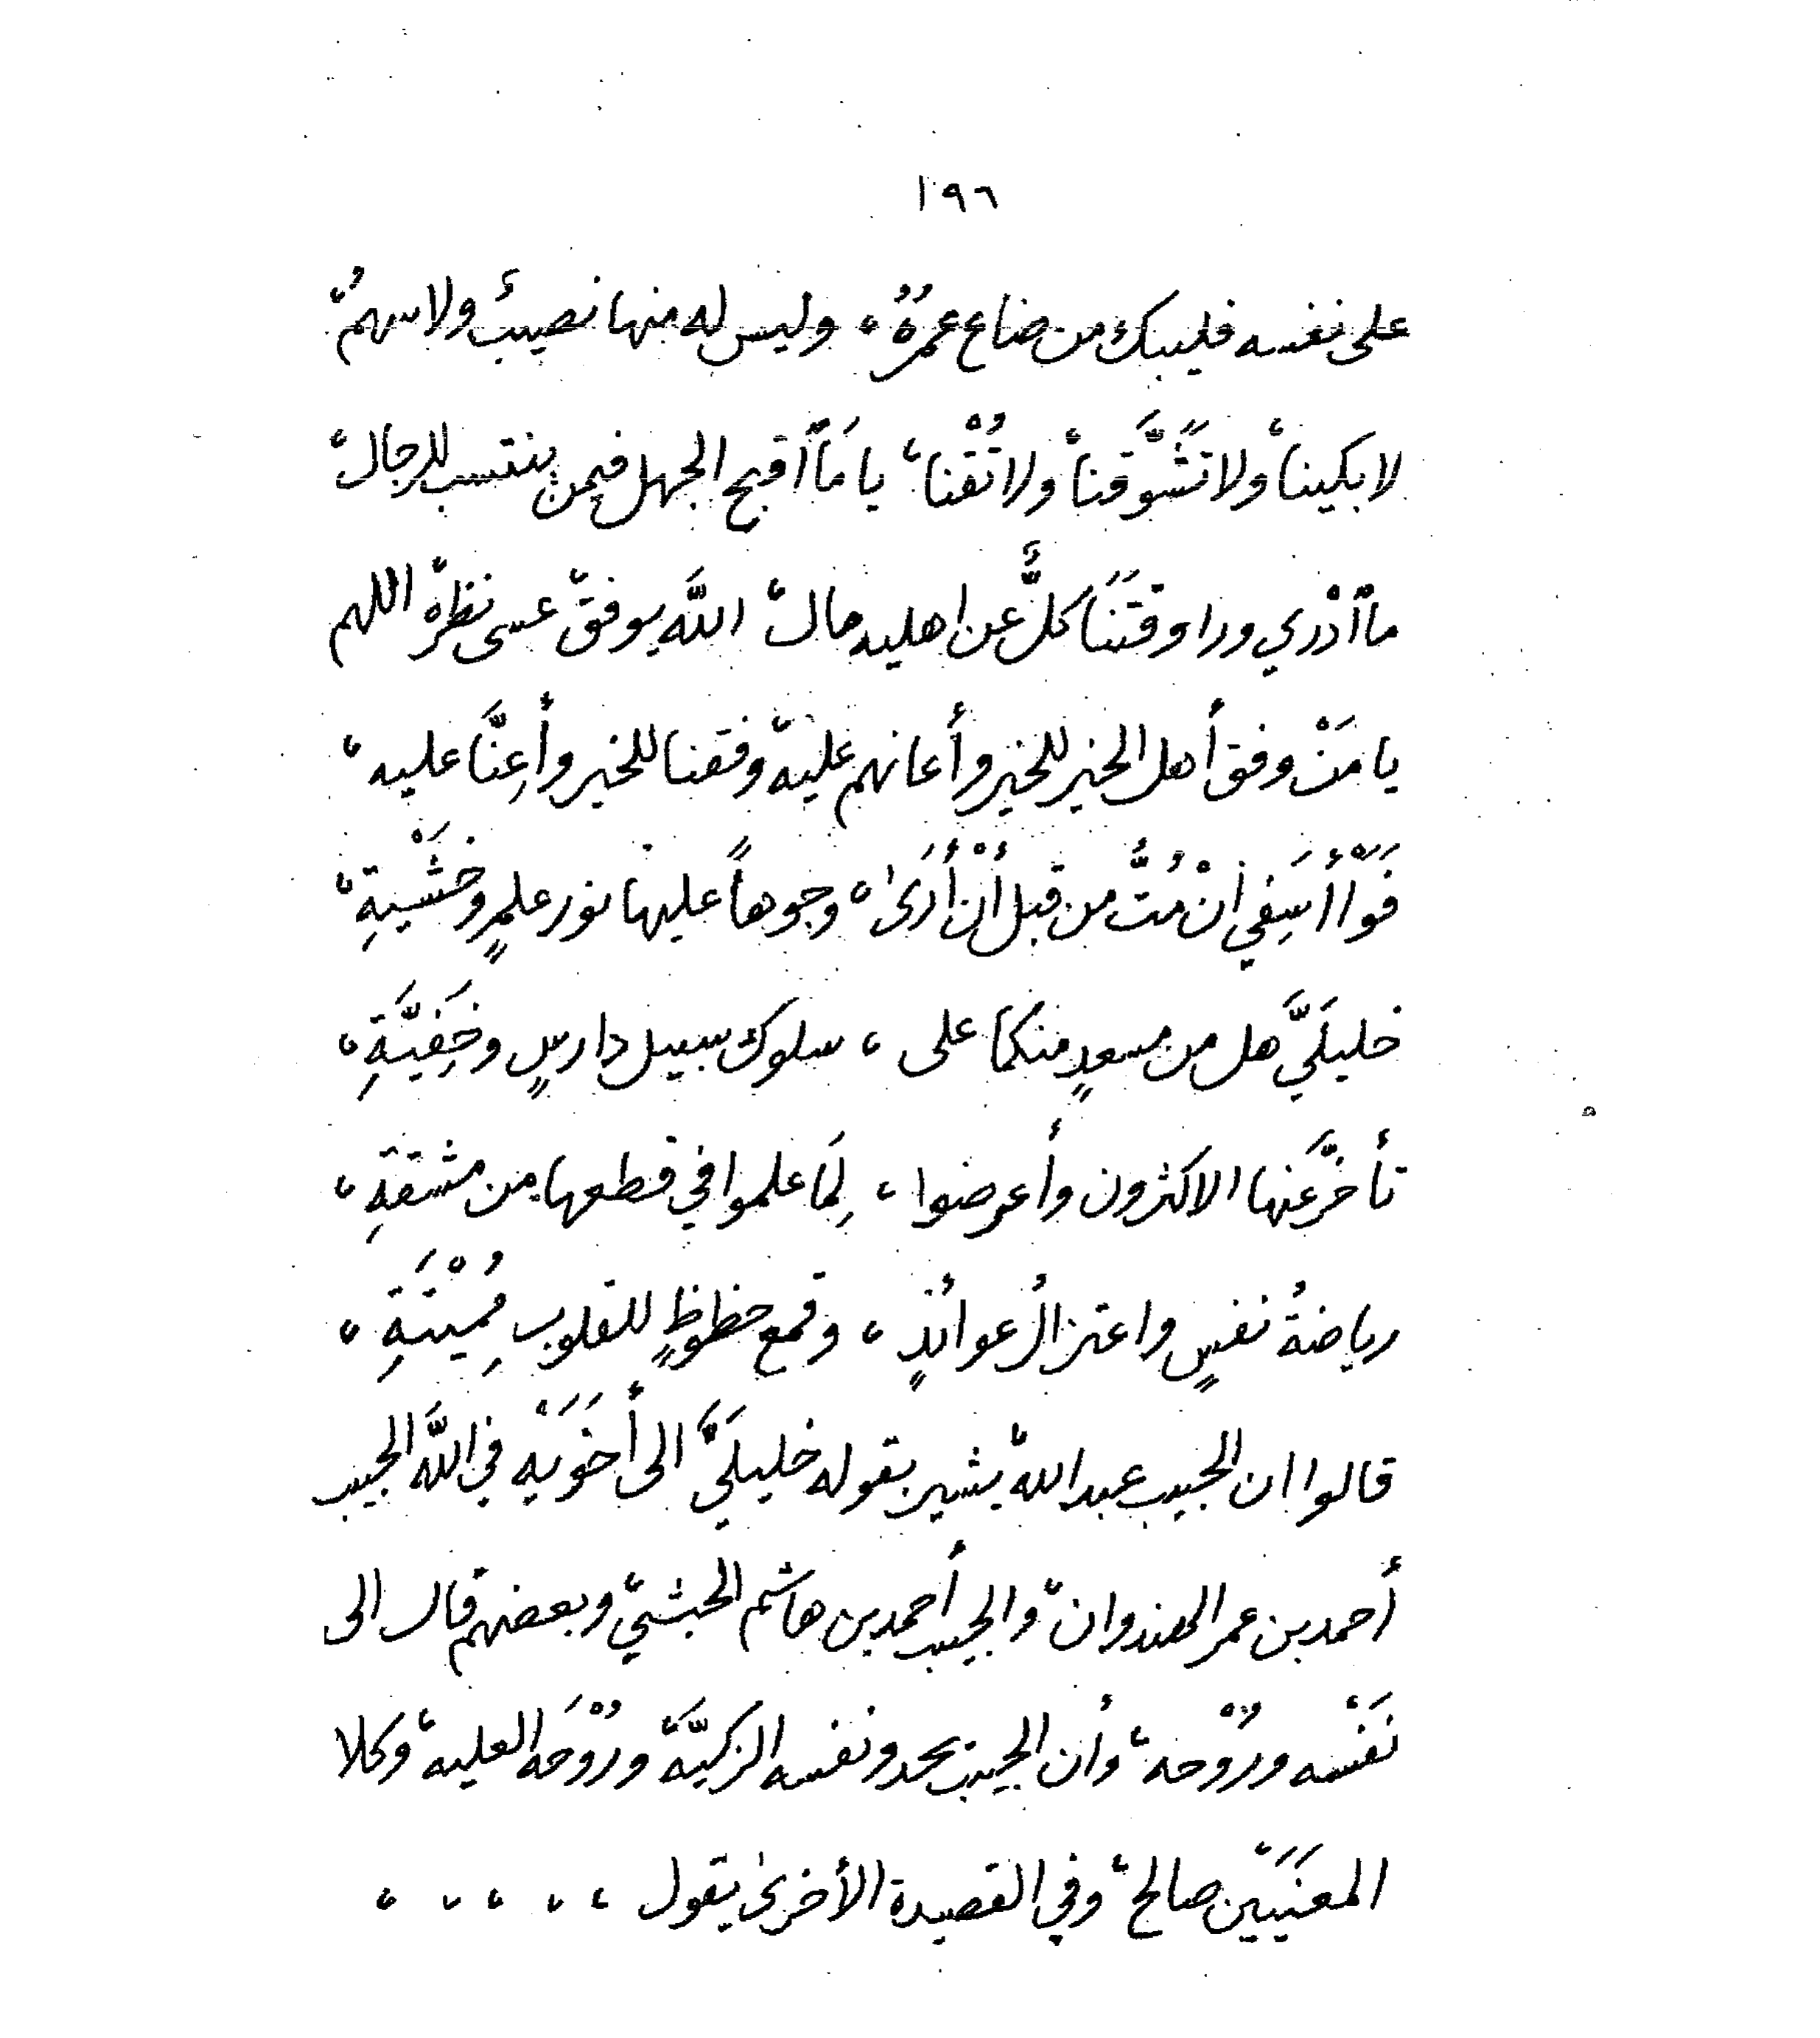 ١٩٦
على نفسه فليبك من ضاع عمرُهُ، وليس له منها نصيبٌ ولا سهمُ،
لا بكينا، ولا تَشَوَّقنا، ولا تُقْنا، يا مَا أقبح الجهل فيمن ينتسب للرجال،
ما أدْري ورا وقتَنَا كلَّ عن اهليه مال، اللَّه يوفق، عسى نظره، اللهم
يا مَنْ وفق أهل الخير للخير وأعانهم عليه، وفقنا للخير وأعِنَّا عليه،
فَوَا أسَفِي انْ مُتُّ من قبل أنْ أرَىٰ، وجوهاً عليها نور علمٍ وخَشْيةِ،
خليلَيَّ هل من مسعدٍ منكما على، سلوك سبيل دارسٍ وخَفِيَّةِ،
تأخَّر عَنها الاكثرون وأعرضوا، لِمَا علموا في قطعها من مشقةِ،
رياضةُ نفسٍ واعتزالُ عوائدٍ، وقمع حظوظٍ للقلوب مُمِيْتَةِ،
قالوا ان الحبيب عبد الله، يشير بقوله خليلَيَّ، الى أخَوَيْه في اللَّه الحبيب
أحمد بن عمر الهندوان، والحبيب أحمد بن هاشم الحبشي، وبعضهم قال الى
نَفْسه ورُوْحه، وأن الحبيب يحدو نفسه الزكيَّة، ورُوْحَه العليه، وكلا
المعنَيَيْن صالح، وفي القصيدة الأخرىٰ يقول ، ، ، ، ،